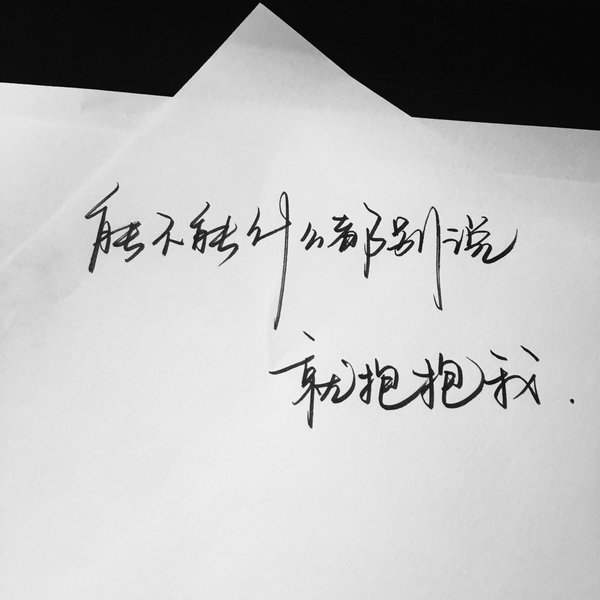 能不能什么都别说
就抱抱我.